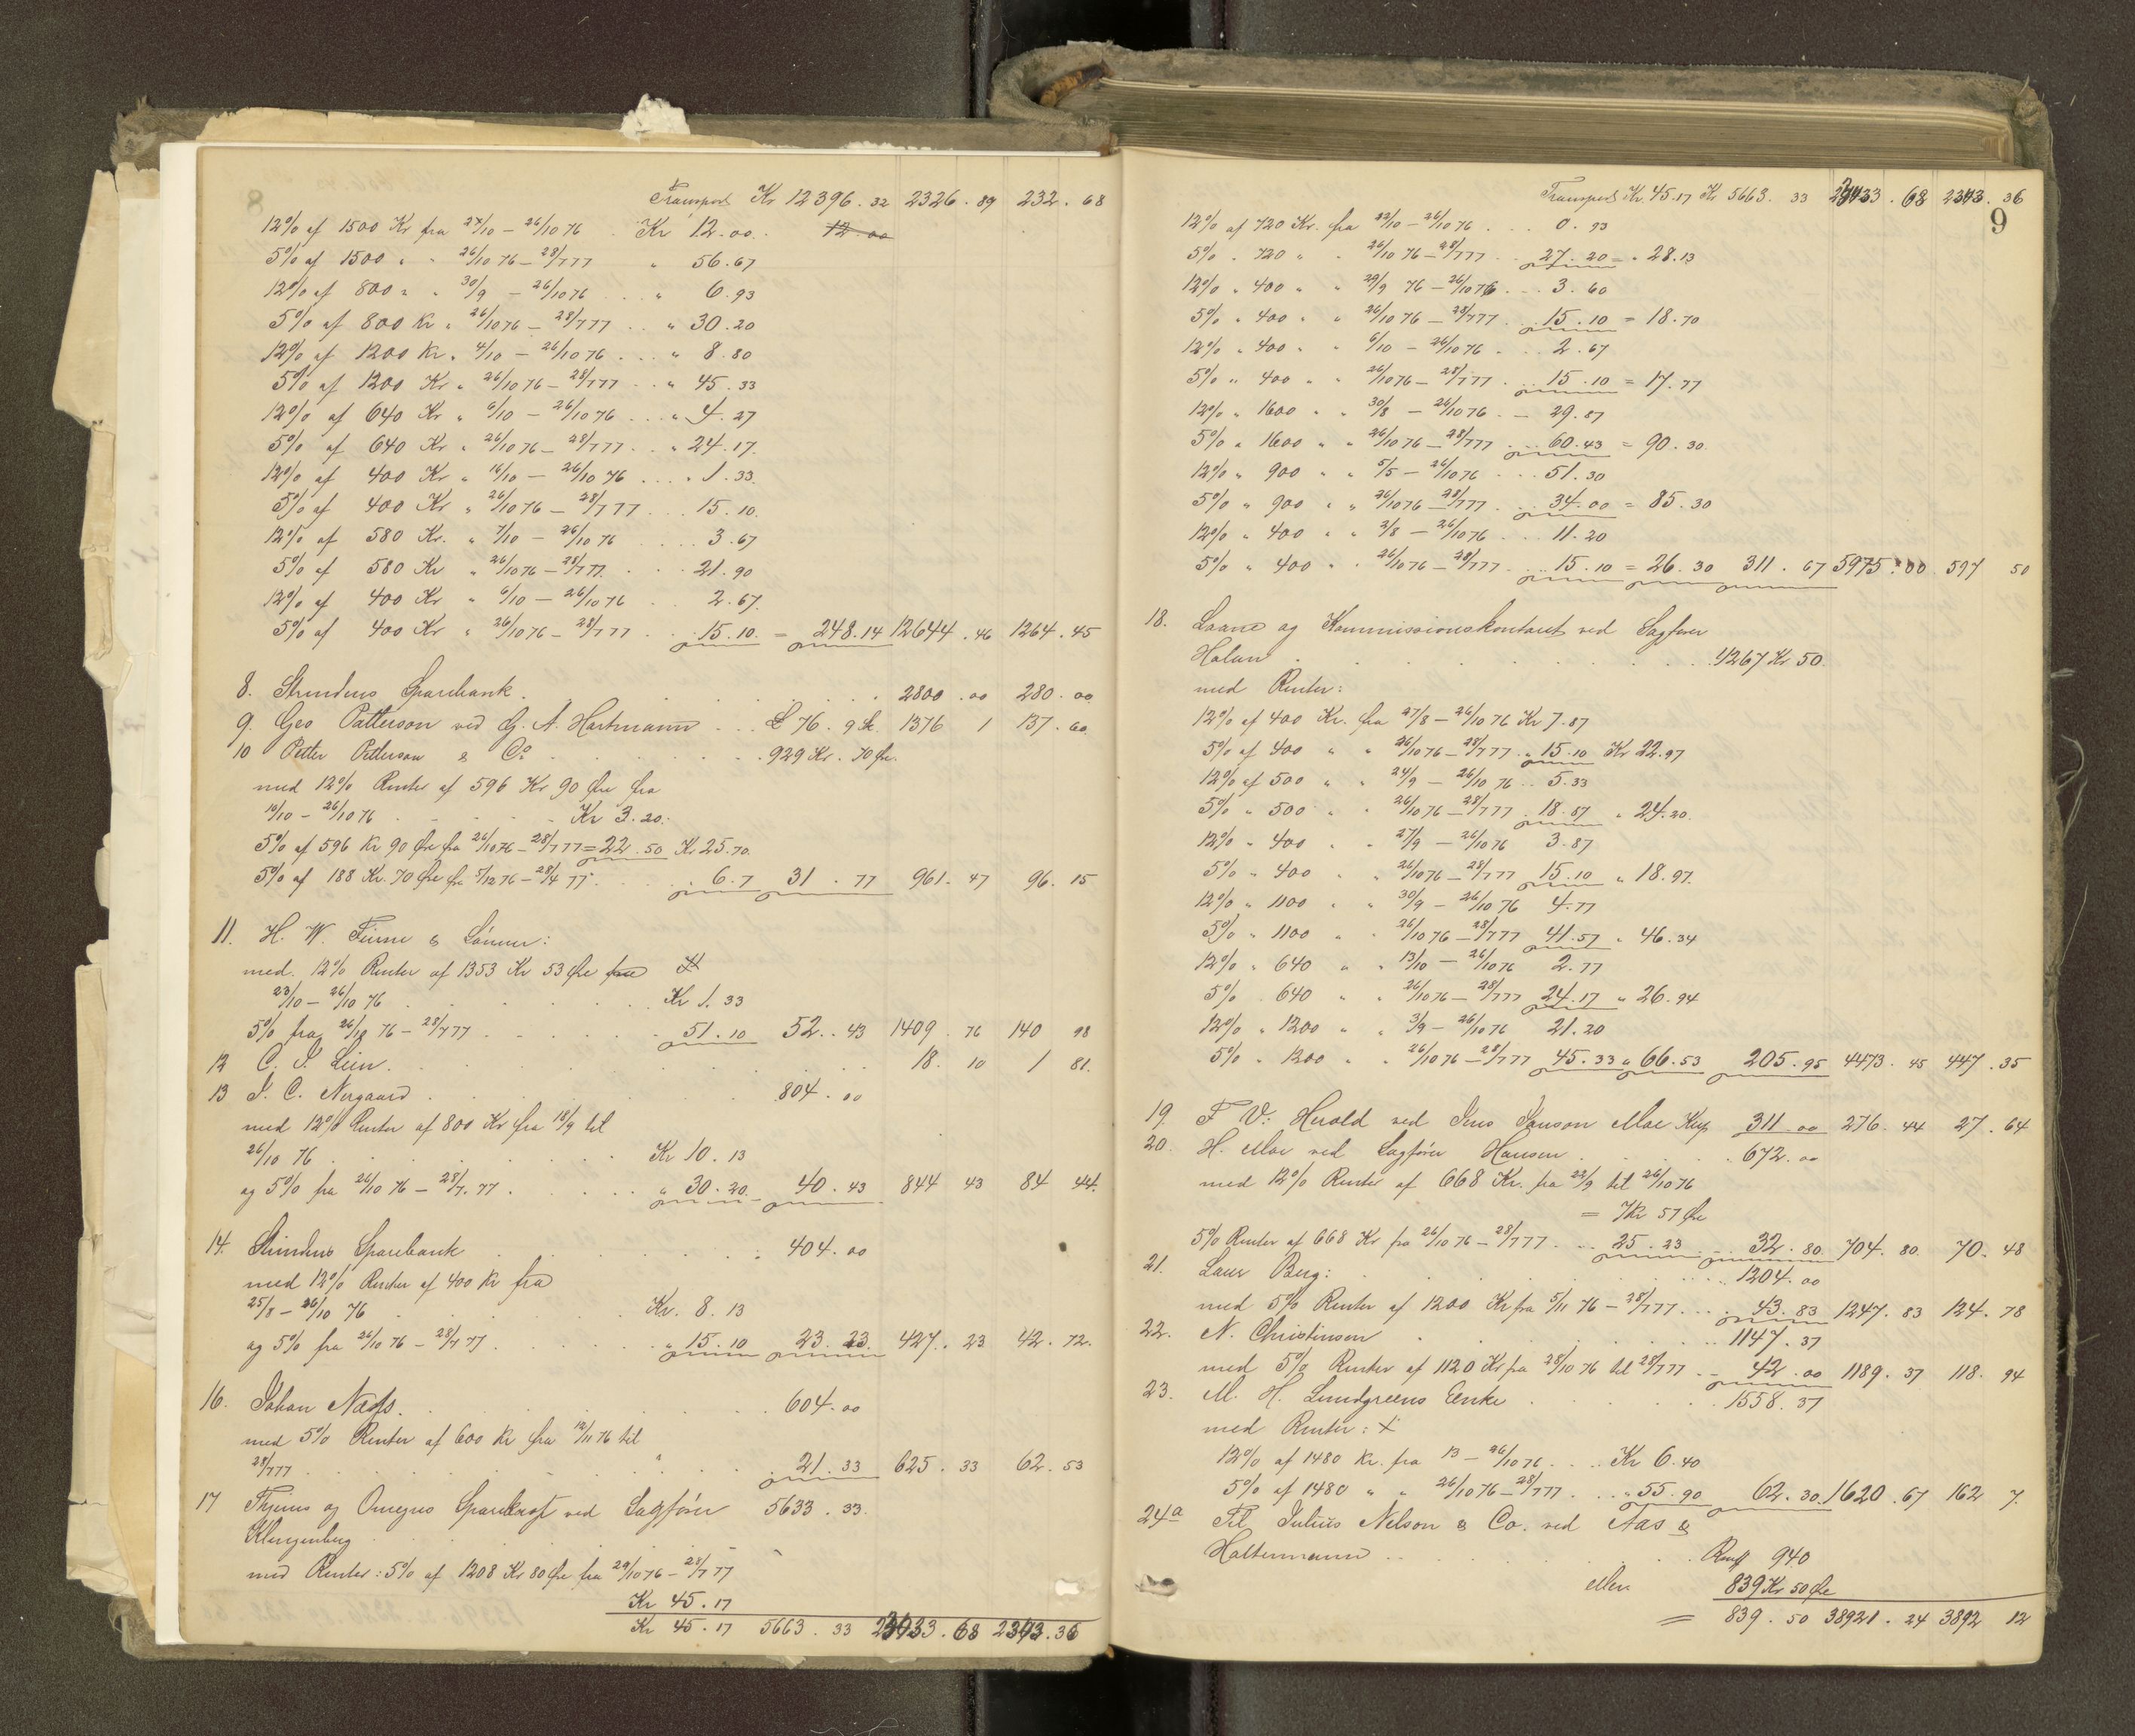 8
Transport Kr 12396.32 2326.89 232.68
12% af 1500 Kr fra 24/10 - 26/10 76 . Kr 12.00. 12.00
5% af 1500 " " 26/10 76 - 28/7 77 " 56.67
12% af 800 " " 30/9 - 26/10 76 . . . " 6.93
5% af 800 Kr " 26/10 76 - 28/7 77 . . " 30.20
12% af 1200 Kr " 4/10 - 26/10 76 . . . " 8.80
5% af 1200 Kr " 26/10 76 - 28/7 77 . . " 45.33
12% af 640 Kr " 6/10 - 26/10 76 . . . " 4.27
5% af 640 Kr " 26/10 76 - 28/7 77 . . " 24.17.
12% af 400 Kr " 16/10 - 26/10 76 . . . . 1.33.
5% af 400 Kr " 26/10 76 - 28/7 77 . . . 15.10.
12% af 580 Kr. " 7/10 - 26/10 76 . . . . 3.67
5% af 580 Kr " 26/10 76 - 28/7 77. . . . 21.90
12% af 400 Kr " 6/10 - 26/10 76 . . 2.67.
5% af 400 Kr " 26/10 76 - 28/7 77 . . 15.10. = 248.14 12644.46 1264.45
8. Strindens Sparebank . . . 2800.00 280.00
9. Geo Patterson ved G. A. Hartmann . . . £ 76. 9 sh. 1376 1 137.60
10 Petter Petterson & Co. . . . 929 Kr. 70 Øre.
med 12% Renter af 596 Kr 90 Øre fra
10/10 - 26/10 76 . . . Kr 3.20.
5% af 596 Kr 90 Øre fra 26/10 76 - 28/7 77 = 22.50 Kr 25.70.
5% af 188 Kr. 70 Øre fra 5/12 76 - 28/7 77. . . 6.7 31.77 961.47 96.15
11. H. W. Finne & Sönner:
med. 12% Renter af 1353 Kr 53 Øre fra
23/10 - 26/10 76 . . . Kr 1.33
5% fra 26/10 76 - 28/7 77 . . . 51.10 52..43 1409.76 140 98
12 C. S. Lein. . . . 18.10 1 81.
13 I. C. Nergaard . . . 804.00
med 12% Renter af 800 Kr fra 18/9 til
26/10 76 . . . Kr 10.13
og 5% fra 26/10 76 - 28/7. 77 . . . " 30.20. 40.43 844 43 84 44.
14. Strindens Sparebank . . . 404.00
med 12% Renter af 400 Kr fra
25/8 - 26/10 76 . . . Kr. 8.13
og 5% fra 26/10 76 - 28/7 77 . . . " 15.10 23.23. 427.23 42.72.
16. Johan Næss. . . . 604.00
med 5% Renter af 600 Kr fra 12/11 76 til
28/7 77 . . . 21.33 625.33 62.53
17 Thjems og Omegns Sparelaug ved Sagförer 5633.33.
Klingenberg . . .
med Renter: 5% af 1208 Kr 80 Øre fra 29/10 76 - 28/7 77
Kr 45.17
Kr 45.17 5663.33 23433.68 2343.36
9
Transport Kr. 45.17 Kr 5663.33 23433.68 2343.36
12% af 720 Kr. fra 22/10 - 26/10 76 . . . 0.93
5% " 720 " " 26/10 76 - 28/7 77 . . 27.20 = . 28.13
12% " 400 " " 29/9 76 - 26/10 76 . . . 3.60
5% " 400 " " 26/10 76 - 28/7 77 . . . 15.10 = 18.70
12% " 400 " " 6/10 - 26/10 76 . . . 2.67
5% " 400 " " 26/10 76 - 28/7 77 . . . 15.10 = 17.77
12% " 1600 " " 30/8 - 26/10 76 . - 29.87
5% " 1600 " " 26/10 76 - 28/7 77 . . . 60.43 = 90.30
12% " 900 " " 5/5 - 26/10 76 . . . 51.30
5% " 900 " " 26/10 76 - 28/7 77 . . . 34.00 = 85.30
12% " 400 " " 2/8 - 26/10 76 . . . 11.20
5% " 400 " " 26/10 76 - 28/7 77 . . . 15.10 = 26.30 311.67 5975.00 597 50
18. Laane og Kommissionskontoret ved Sagförer
Holum . . . 4267 Kr 50.
med Renter:
12% af 400 Kr. fra 27/8 - 26/10 76 Kr 7.87
5% af 400 " " 26/10 76 - 28/7 77 . " 15.10 Kr 22.97
12% af 500 " " 24/9 - 26/10 76 . . 5.33
5% " 500 " " 26/10 76 - 28/7 77 . 18.87 " 24.20.
12% " 400 " " 27/9 - 26/10 76 3.87
5% " 400 " " 26/10 76 - 28/7 77 15.10 " 18.97.
12% " 1100 " " 30/9 - 26/10 76 4.77
5% " 1100 " " 26/10 76 - 28/7 77 41.57 " 46.34
12% " 640 " " 13/10 - 26/10 76 2.77
5% " 640 " " 26/10 76 - 28/7 77 24.17 " 26.94
12% " 1200 " " 3/9 - 26/10 76 21.20
5% " 1200 " " 26/10 76 - 28/7 77 45.33 " 66.53 205.95 4473.45 447.35
19. F V. Herold ved Jens Janson Moe 311.00 276.44 27.64
20. H. Moe ved Sagförer Hansen . . . 672.00
med 12% Renter af 668 Kr. fra 22/9 til 26/10 76
= 7 Kr 57 Øre
5% Renter af 668 Kr fra 26/10 76 - 28/7 77 . . . 25.23 . . 32.80. 704.80. 70.48
21. Laur Berg: . . . 1204.00
med 5% Renter af 1200 Kr fra 5/11 76 - 28/7 77 . . . 43.83 1247.83 124.78
22. N. Christinson . . . 1147.37
med 5% Renter af 1120 Kr fra 28/10 76 til 28/7 77 . - 42.00 1189.37 118.94
23. M. H. Lundgreens Enke . . . 1558.37
med Renter: +
12% af 1480 Kr. fra 13 - 26/10 76 . . . Kr 6.40
5% af 1480 " " 26/10 76 - 28/7 77 . . . " 55.90 62.30. 1620.67 162 7.
24a Til Julius Nelson & Co. ved Aas &
Haltermann . . . Rmk 940
eller 839 Kr 50 Øre
= 839.50 38921.24 3892 12